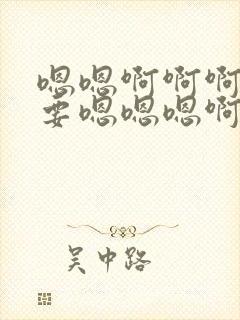 嗯嗯啊啊啊
要嗯嗯嗯啊
吴中路